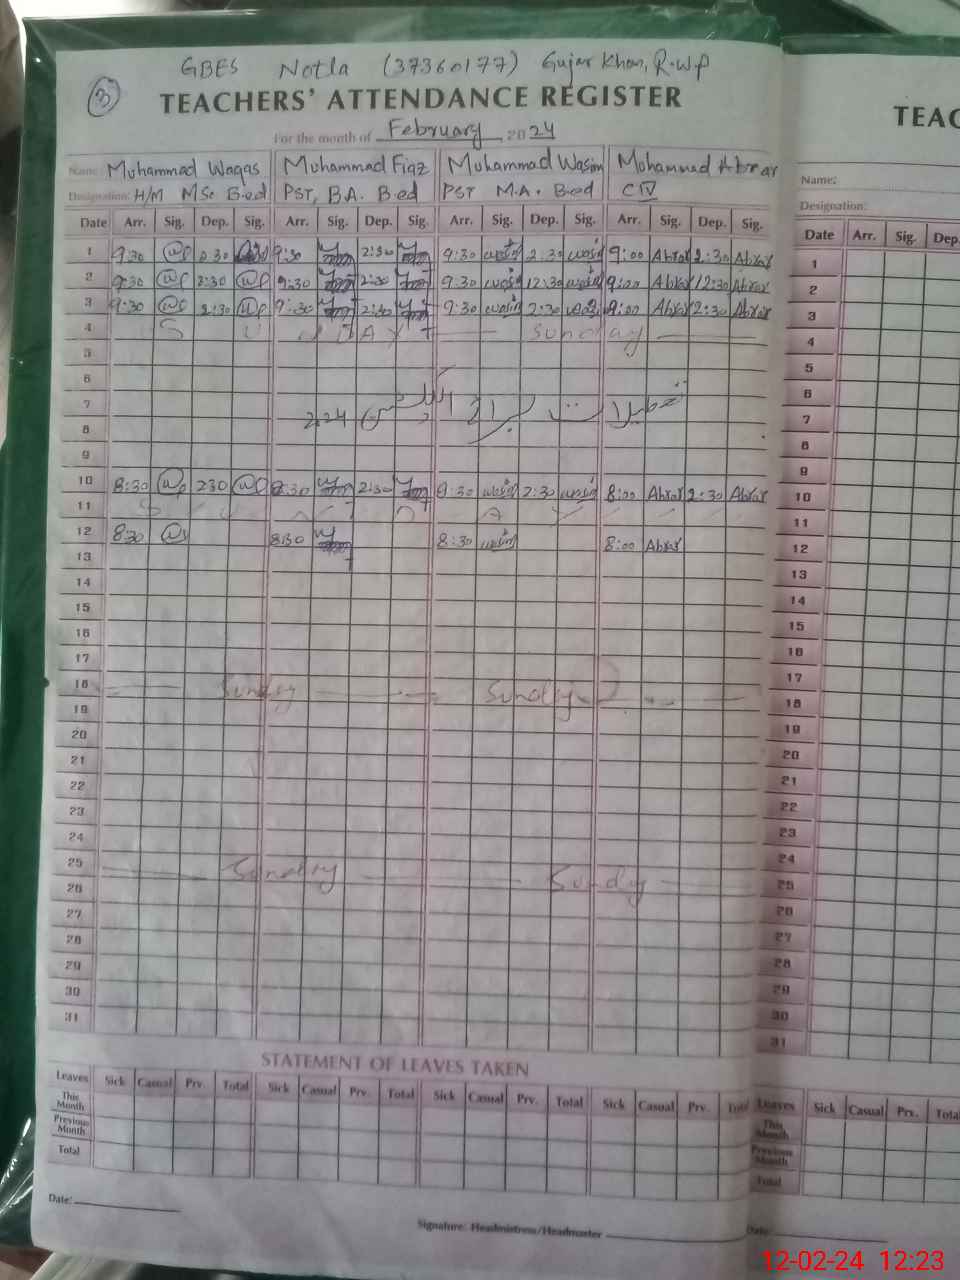 GBES Notla (37360177) Gujar Khan, R.W.P
3
TEACHERS' ATTENDANCE REGISTER
For the month of February 2024
Name: Muhammad Waqas Muhammad Fiaz Muhammad Wasim Muhammad Abrar
Designation: H/M MSc B.ed PST, B.A. B.ed PST M.A. B.ed C IV
Date Arr. Sig. Dep. Sig. Arr. Sig. Dep. Sig. Arr. Sig. Dep. Sig. Arr. Sig. Dep. Sig.
1 9:30 2:30 9:30 2:30 9:30 wasim 2:30 wasim 9:00 Abrar 2:30 Abrar
2 9:30 9:30 9:30 wasim 12:30 wasim 9:00 Abrar 12:30 Abrar
3 9:30 2:30 9:30 2:30 9:30 wasim 2:30 9:00 Abrar 2:30 Abrar
4 S U N D A Y Sunday
5
6
7 تعطیلات برائے الیکشن 2024
8
9
10 8:30 2:30 8:30 2:30 9:30 wasim 2:30 wasim 8:00 Abrar 2:30 Abrar
11 S U N D A Y
12 8:30 8:30 8:30 wasim 8:00 Abrar
13
14
15
16
17
18 Sunday Sunday
19
20
21
22
23
24
25 Sunday Sunday
26
27
28
29
30
31
STATEMENT OF LEAVES TAKEN
Leaves Sick Casual Prv. Total Sick Casual Prv. Total Sick Casual Prv. Total Sick Casual Prv. Total
This Month
Previous Month
Total
Date:
Signature: Headmistress/Headmaster
TEAC
Name:
Designation:
Date Arr. Sig. Dep.
1
2
3
4
5
6
7
8
9
10
11
12
13
14
15
16
17
18
19
20
21
22
23
24
25
26
27
28
29
30
31
Leaves Sick Casual Prv. Total
This Month
Previous Month
Total
Date:
12-02-24 12:23